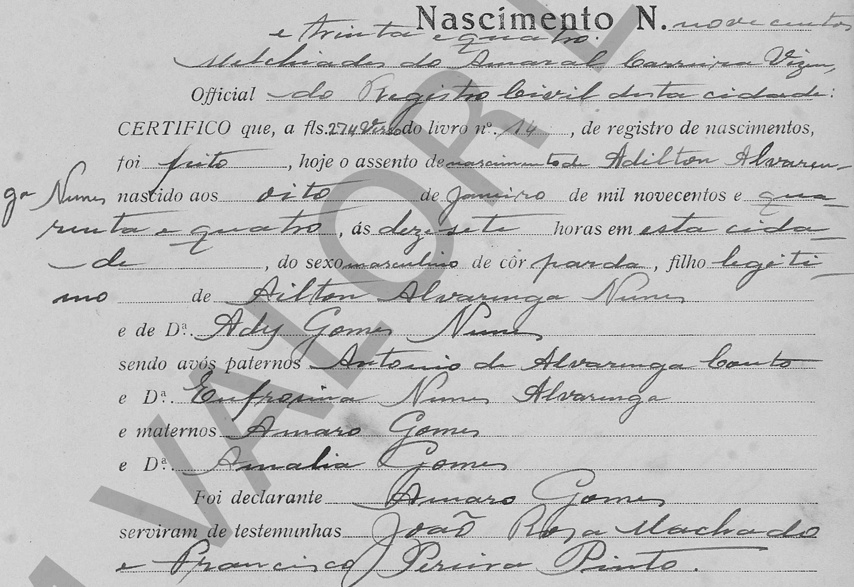 Nascimento N. novecentos
e trinta e quatro.
Melchiades do Amaral Carreira Vizeu,
Official do Registro Civil desta cidade:
CERTIFICO que, a fls. 274 Verso do livro nº. 14, de registro de nascimentos,
foi feito, hoje o assento de nascimento de Adilton Alvaren-
ga Nunes nascido aos oito de Janeiro de mil novecentos e qua-
renta e quatro, ás dezesete horas em esta cida-
de, do sexo masculino de côr parda, filho legiti-
mo de Ailton Alvarenga Nunes
e de Dª. Ady Gomes Nunes
sendo avós paternos Antonio de Alvarenga Couto
e Dª. Eufrosina Nunes Alvarenga
e maternos Amaro Gomes
e Dª. Amalia Gomes
Foi declarante Amaro Gomes
serviram de testemunhas João Rosa Machado
e Francisco Pereira Pinto.